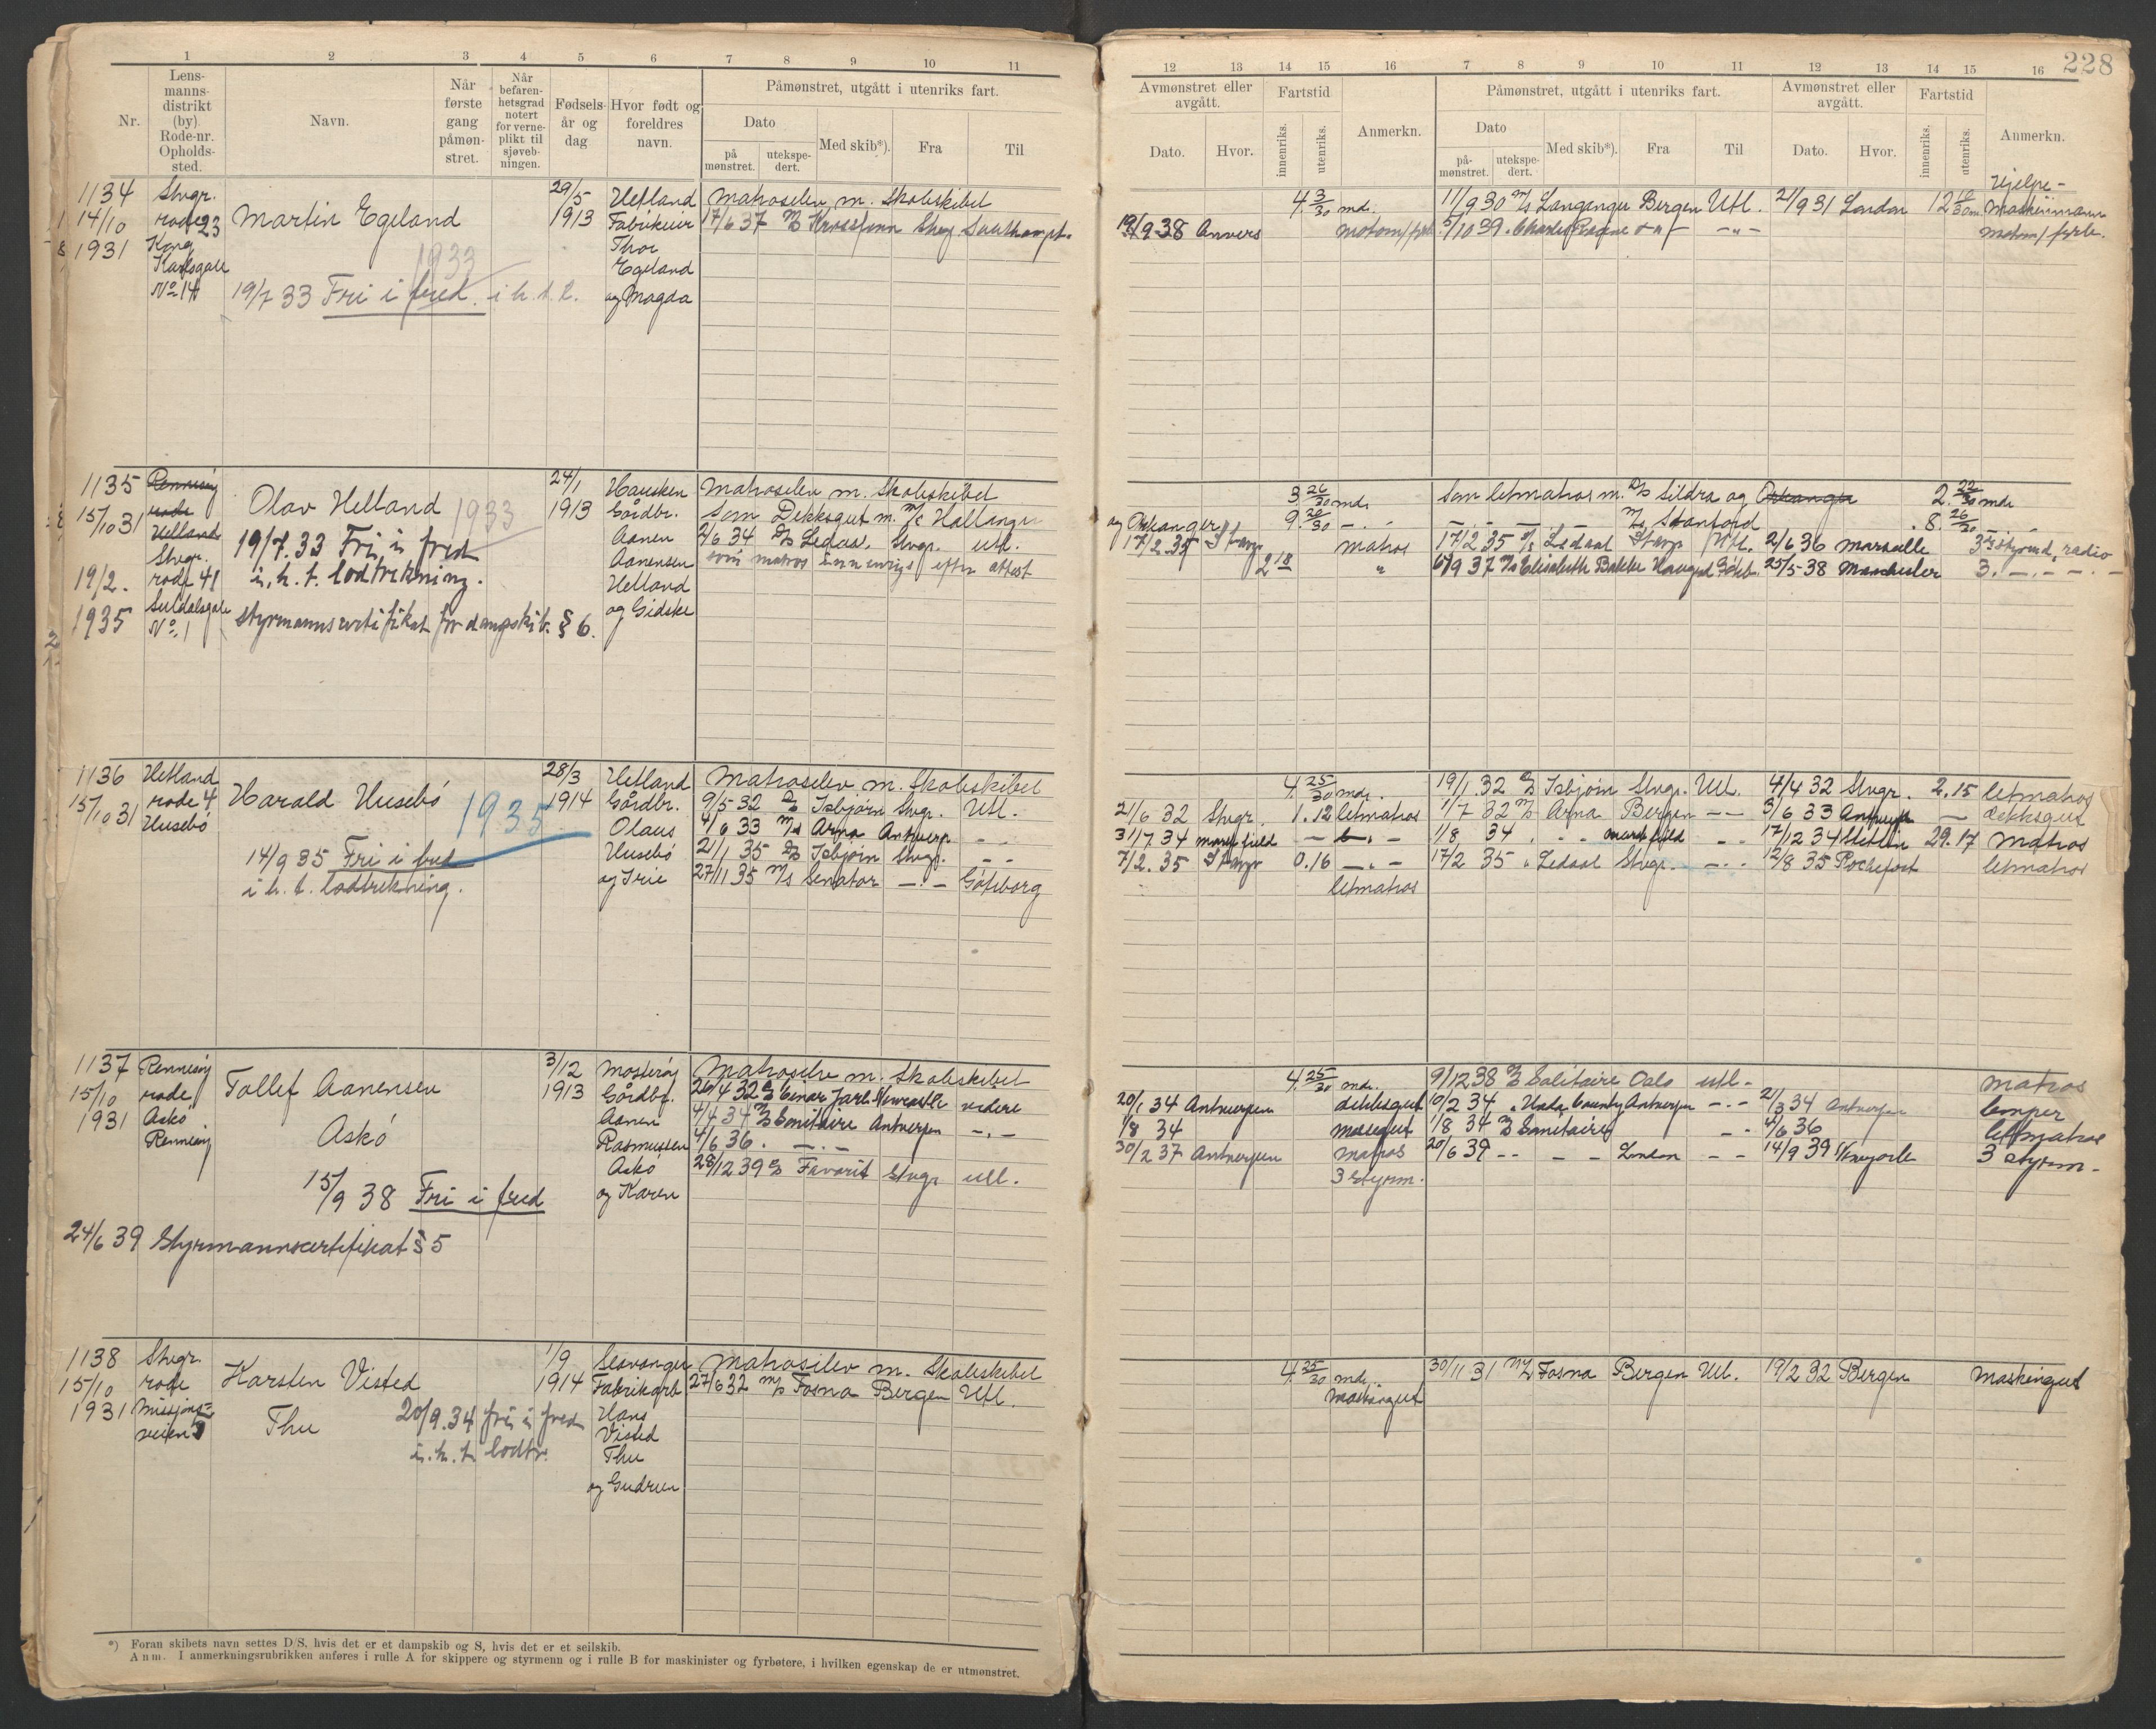 228
1 2 3 4 5 6 7 8 9 10 11
Nr.
Lens-
manns-
distrikt
(by).
Rode-nr.
Opholds-
sted.
Navn.
Når
første
gang
påmøn-
stret.
Når
befaren-
hetsgrad
notert
for verne-
plikt til
sjøveb-
ningen.
Fødsels-
år og
dag
Hvor født og
foreldres
navn.
Påmønstret, utgått i utenriks fart.
Dato
på
mønstret.
utekspe-
dert.
Med skib*).
Fra
Til
12 13 14 15 16 7 8 9 10 11 12 13 14 15 16
Avmønstret eller
avgått.
Dato.
Hvor.
Fartstid
innenriks.
utenriks.
Anmerkn.
Påmønstret, utgått i utenriks fart.
Dato
på-
mønstret.
utekspe-
dert.
Med skib*).
Fra
Til
Avmønstret eller
avgått.
Dato.
Hvor.
Fartstid
innenriks.
utenriks.
Anmerkn.
1134
14/10
1931
Stvgr.
rode 23
Kong
Karlsgate
No 14
Martin Egeland
1933
19/7 33 Fri i fred i h. t. l.
29/5
1913
Hetland
Fabrikeier
Thor
Egeland
og Magda
Matroselev m. Skoleskibet
17/6 37 M/S Krossfonn Stvg. Southampt.
4 3/30 md.
19/9 38 Anvers motom/fyrb.
11/9 30 M/S Langanger Bergen Utl. 21/9 31 London 12 10/30 m.
Hjelpe-
Maskinmann
5/10 39 Charles Racine
motom/fyrb.
1135
15/10 31
19/2.
1935
Rennesøy
rode
Helland
Stvgr.
rode 41
Suldalsgate
No. 1
Olav Helland
1933
19/7.33 Fri i fred
i. h. t. lodtrekning.
Styrmannscertifikat for dampskib. § 6.
24/1
1913
Hausken
Gårdbr.
Aanen
Aanensen
Helland
og Gidske
Matroselev m. Skoleskibet
Som Dekksgut m. M/S Hallanger
2/6 34 D/S Ledaal, Stvgr. Utl.
som matros innenriks efter attest
3 26/30 md.
og Orkanger 9 20/30 - " -
17/2.35 Stavgr matros
2 18 "
Som letmatros m. D/S Sildra og Orkanger 2 22/30 md.
M/S Stanford 8. 26/30
17/2 35 D/S Ledaal Stavgr Utl. 2/6 36 Marseille 3. styrmd, radio
6/9 37 M/S Elisabeth Bakke Haugesd Gøteb. 25/5-38 Manchester 3. - " -
1136
15/10 31
Hetland
rode 4
Husebø
Harald Husebø
1935
14/9 35 Fri i fred
i. h. t. lodtrekning.
28/3
1914
Hetland
Gårdbr.
Olaus
Husebø
og Irie
Matroselev m. Skoleskibet
9/5-32 D/S Isbjørn Stvgr. Utl.
4/6 33 M/S Arna Antwerp. - " -
21/1 35 D/S Isbjørn Stvgr. - " -
27/11 35 M/S Senator - " - Gøteborg
4. 25/30 md.
21/6 32 Stvgr. 1.12 letmatros
31/7 34 Marshfield - " -
7/2.35 Stavgr 0.16 - " -
letmatros
19/1 32 D/S Isbjørn Stvgr. Utl. 4/4 32 Stvgr. 2.15 letmatros
1/7 32 M/S Arna Bergen - " - 3/6 33 Antwerpen - dekksgut
1/8 34 " - " - Marshfield - " - 17/12 34 Stettin 29.17 Matros
17/2 35 " Ledaal Stvgr. - " - 12/8 35 Rochefort letmatros
1137
15/10
1931
Rennesøy
rode
Askø
Rennesøy
Tollef Aanensen
Askø
15/9 38 Fri i fred
24/6 39 Styrmannscertifikat § 5
3/12
1913
Mosterøy
Gårdbr.
Aanen
Rasmussen
Askø
og Karen
Matroselev m. Skoleskibet
26/4 32 D/S Einar Jarl Newcastle videre
4/4 34 D/S Sanitaire Antverpen - " -
4/6 36 . - " -
28/12 39 D/S Favorit Stvgr utl.
4. 25/30 md.
20/1 34 Antwerpen dekksgut
1/8 34 Messgut
30/2 37 Antwerpen Matros
3 Styrm.
9/12 38 D/S Solitaire Oslo utl. - Matros
10/2 34 " County Antwerpen - " - 21/3 34 Antwerpen Lemper
1/8 34 D/S Sanitaire - " - 4/6 36 letmatros
20/6 39 - - - - London - - 14/9 39 Newyork 3 styrm.
1138
15/10
1931
Stvgr.
rode
Missjons-
veien 5
Karsten Visted
Thu
20/9.34 fri i fred
i. h. t. lodtr.
1/9
1914
Stavanger
Fabrikarb
Hans
Visted
Thu
og Gudrun
Matroselev m. Skoleskibet
27/6 32 M/S Fosna Bergen Utl.
4. 25/30 md.
Maskingut
30/11 31 M/S Fosna Bergen Utl. 19/2 32 Bergen Maskingut
*) Foran skibets navn settes D/S, hvis det er et dampskib og S, hvis det er et seilskib.
Anm. I anmerkningsrubrikken anføres i rulle A for skippere og styrmenn og i rulle B for maskinister og fyrbøtere, i hvilken egenskap de er utmønstret.